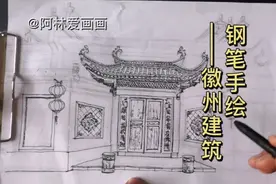 @阿林爱画画
钢笔手绘
——徽州建筑